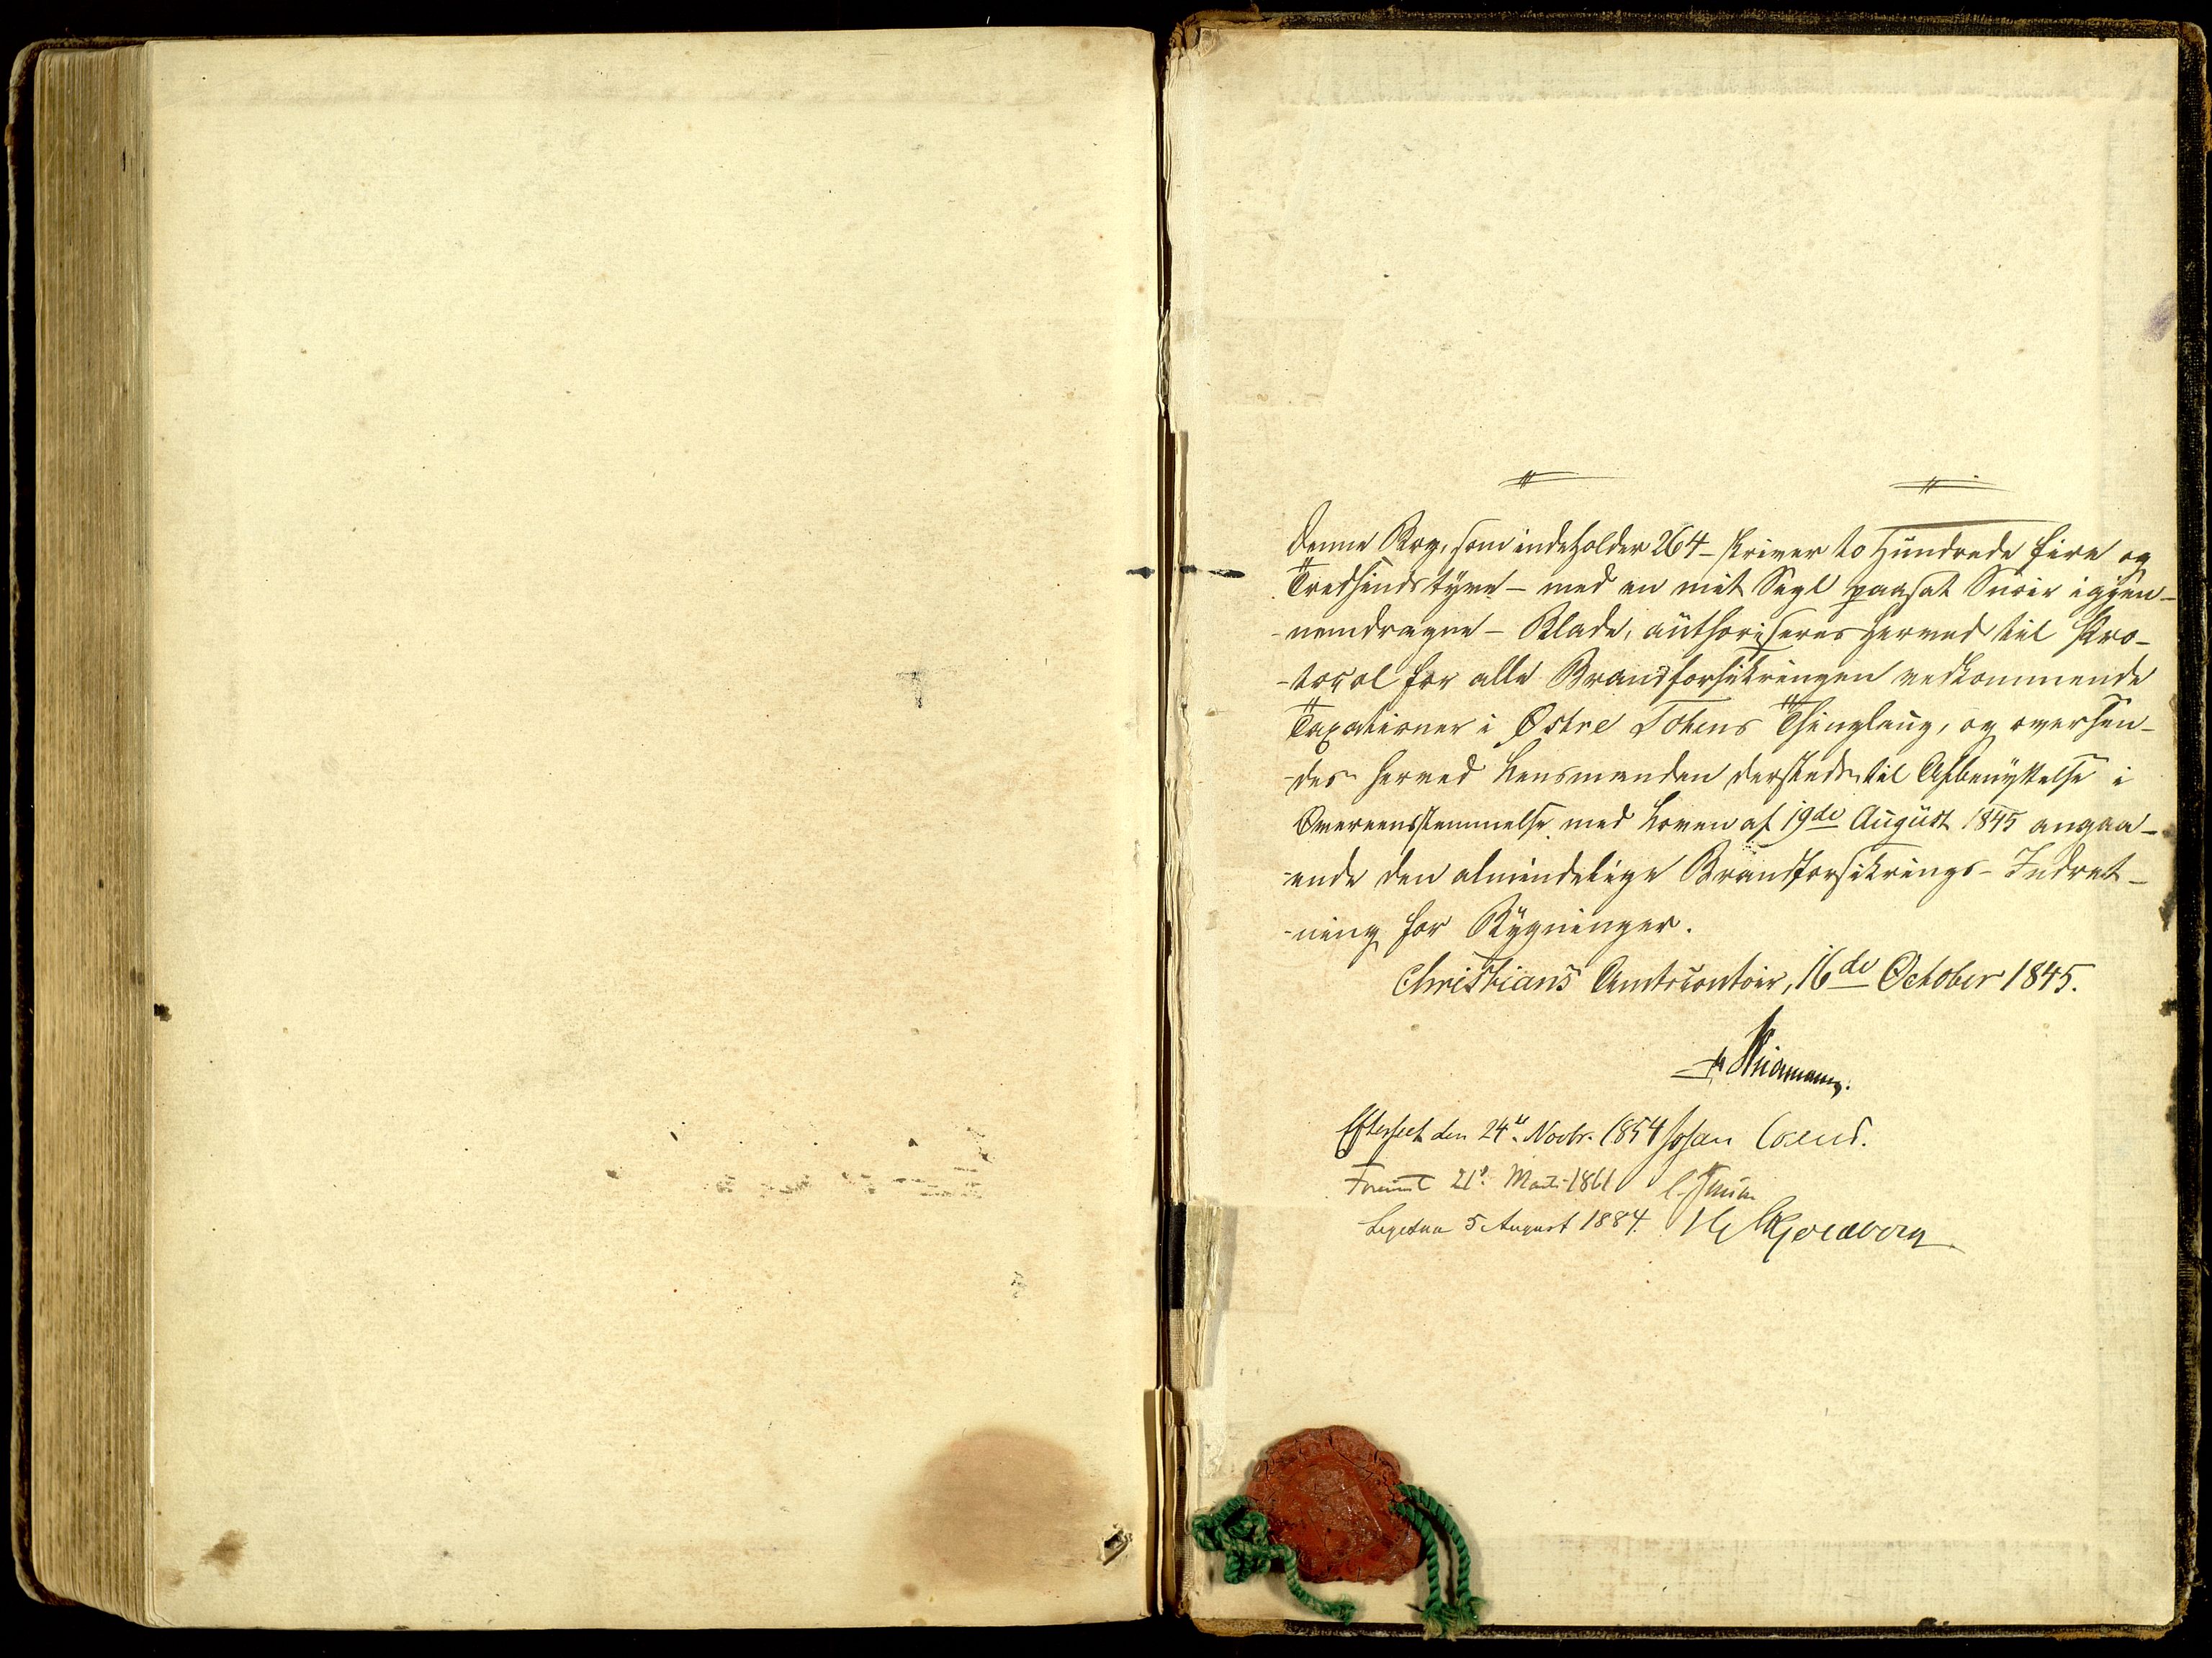 Denne Bog, som indeholder 264 - skriver to Hundrede fire og
Tredsindstyve - med en mit Segl paasat Snoer igjen-
-nemdragne - Blade, authoriseres herved til Pro-
-tocol for alle Brandforsikringen vedkommende
Taxationer i Østre Totens Thinglaug, og oversen-
-des herved Lensmanden dersteds til Afbenyttelse i
Overeensstemmelse med Loven af 19de August 1845 angaa-
-ende den almindelige Brandforsikrings-Indret-
-ning for Bygninger.
Christians Amtscontoir, 16de October 1845.
Efterseet den 24de Novbr. 1854 Johan
21de Marts 1861
5 August 1884.